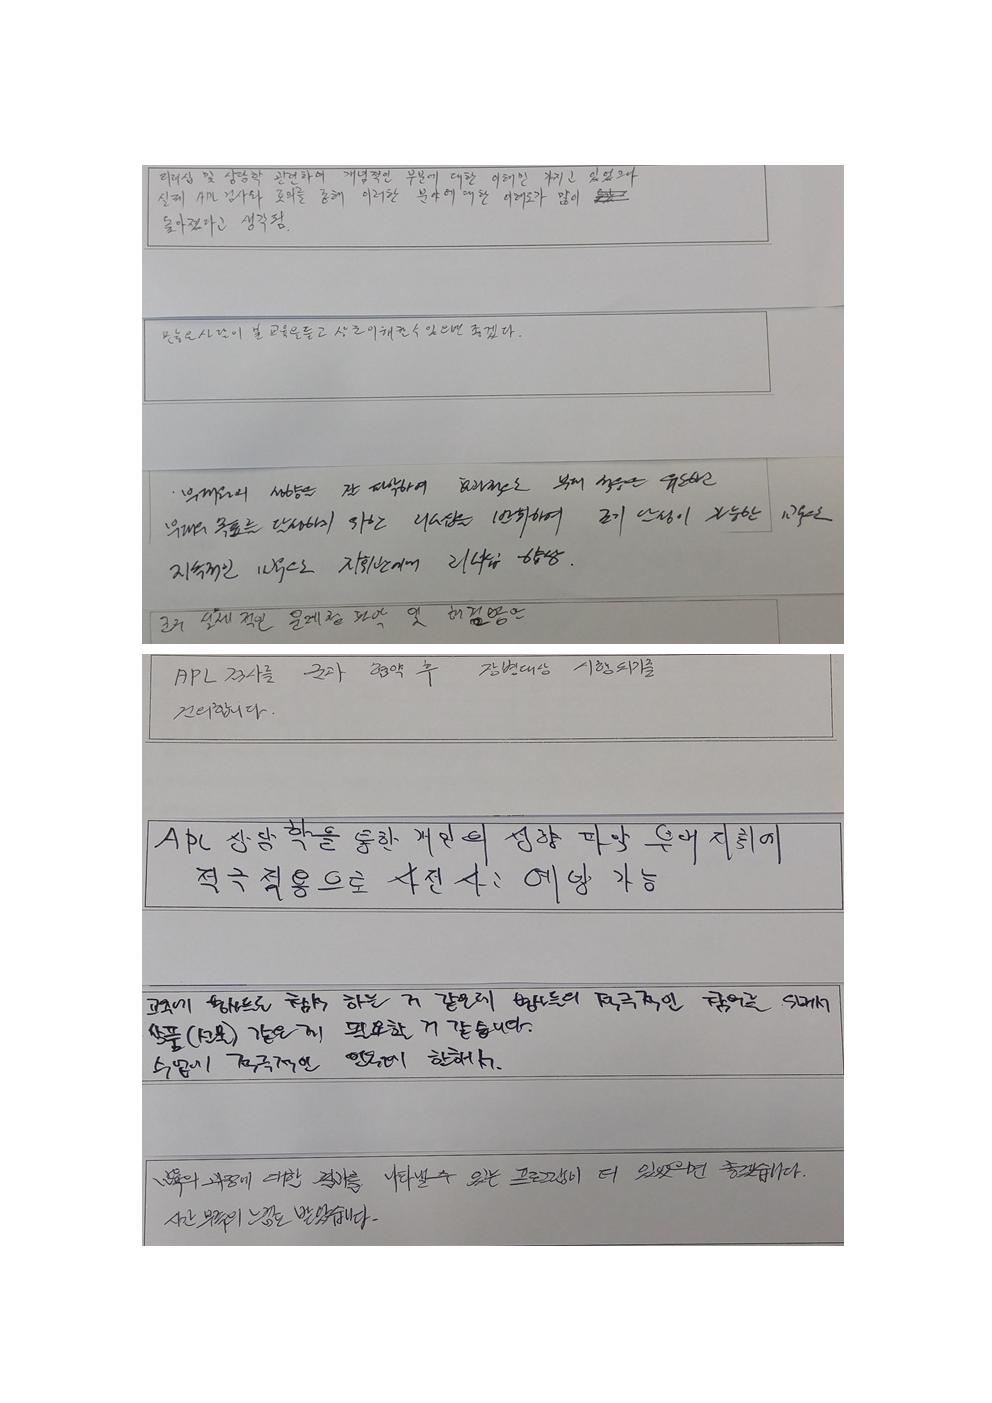 리더십 및 상담학 관련하여 개념적인 부분에 대한 이해만 가지고 있었으나
실제 APL 검사와 토의를 통해 이러한 분야에 대한 이해도가 많이
높아졌다고 생각함.
많은 사람이 본 교육을 듣고 상호이해할 수 있으면 좋겠다.
성향을 잘 파악하여 효과적으로 부대 적응을 유도하고
부대의 목표를 달성하기 위한 리더십을 발휘하여 조기 달성이 가능한 교육으로
지속적인 교육으로 지휘관에게 리더십 향상.
실제적인 문제점 파악 및 해결방안
APL 검사를 군과 협약 후 장병대상 시행되기를
건의합니다.
APL 상담학을 통한 개인의 성향 파악 부대 지휘에
적극 적용으로 사전 사고 예방 가능
교육에 참석 하는 거 같은데 적극적인 참여를 위해서
상품(선물) 같은 게 필요한 거 같습니다.
수업에 적극적인 인원에 한해서.
교육의 과정에 대한 결과를 나타낼 수 있는 프로그램이 더 있었으면 좋겠습니다.
시간 부족의 느낌도 받았습니다.